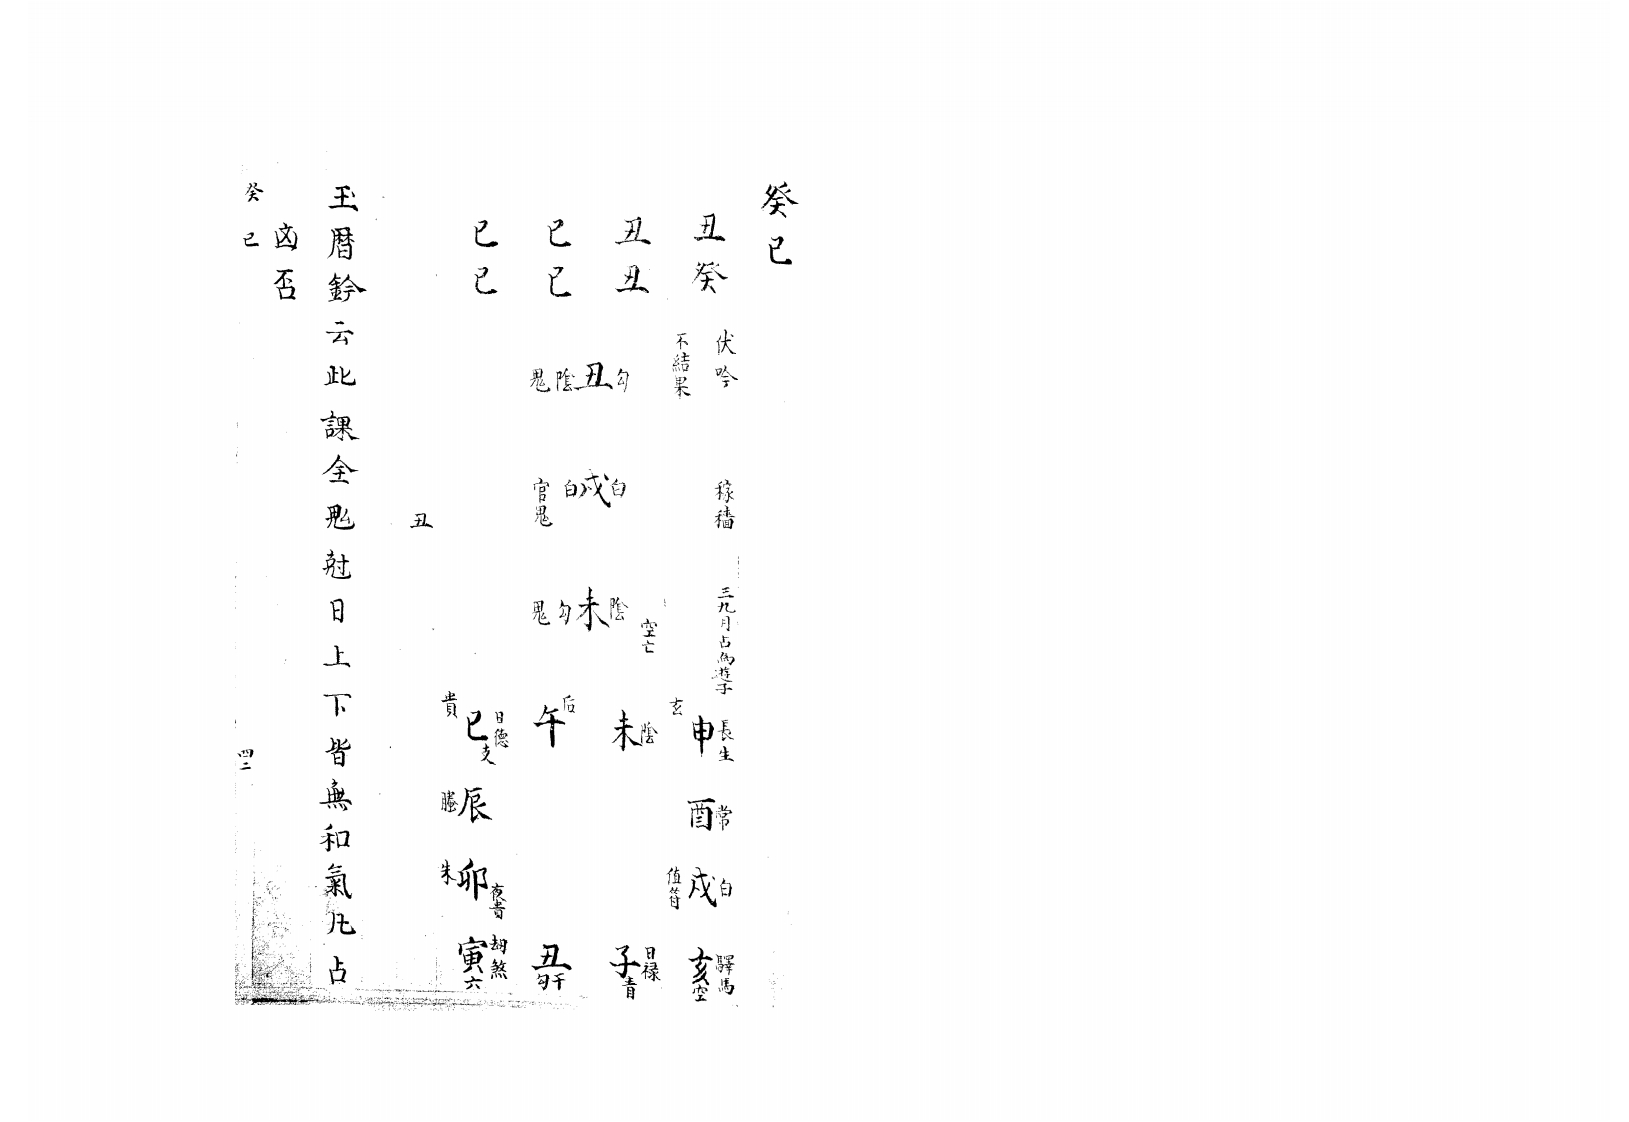 癸巳
丑癸
丑丑
巳巳
巳巳
伏吟
不結果
稼穡
三九月占為遊子
勾丑陰鬼
白戌白官鬼
陰未勾鬼
空亡
丑
玄申長生
酉常
值符戌白
亥空驛馬
未陰
子青日禄
午后
丑勾干
貴巳日德支
螣辰
朱卯夜貴
寅六劫煞
玉曆鈐云此課全鬼尅日上下皆無和氣凡占
凶否
癸巳
四二